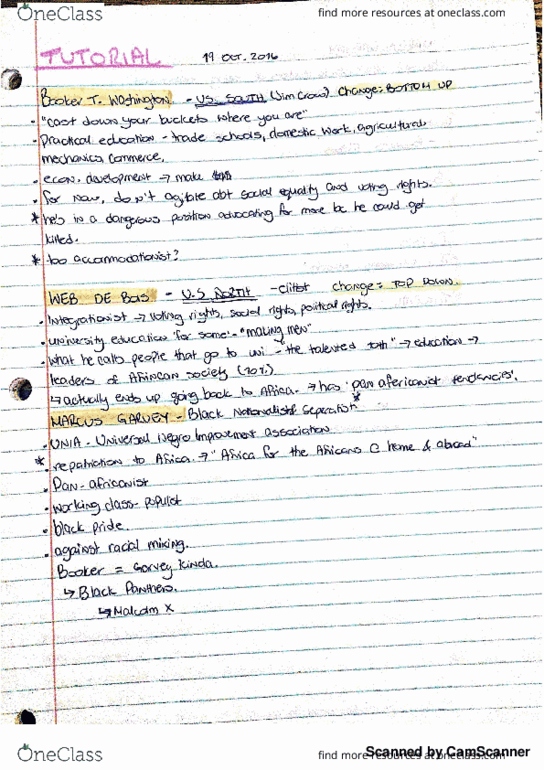 OneClass
find more resources at oneclass.com
TUTORIAL 19 OCT. 2016
Booker T. Washington - U.S. SOUTH (Jim Crow) Change: BOTTOM UP
- "cast down your buckets where you are"
- Practical education - trade schools, domestic work, agricultured,
mechanics commerce.
- econ. development → make
- for now, don't agitate abt social equality and voting rights.
* he's in a dangerous position advocating for more bc he could get
killed.
* too accommodationist?
WEB DE BOIS - U.S NORTH - elitist change = TOP DOWN.
- Integrationist → voting rights, social rights, political rights.
- university education for some - "making men"
- what he calls people that go to uni - "the talented 10th" → education →
leaders of African society (10%)
↳ actually ends up going back to Africa. → has 'pan africanist tendencies'.
MARCUS GARVEY - Black Nationalist & Separatist *
- UNIA - Universal Negro Improvement association
* repatriation to Africa. → "Africa for the Africans @ home & abroad"
- Pan-africanist
- working class - populist
- black pride.
- against racial mixing.
Booker = Garvey Kinda.
↳ Black Panthers.
↳ Malcolm X
OneClass
find more resources at oneclass.com
Scanned by CamScanner